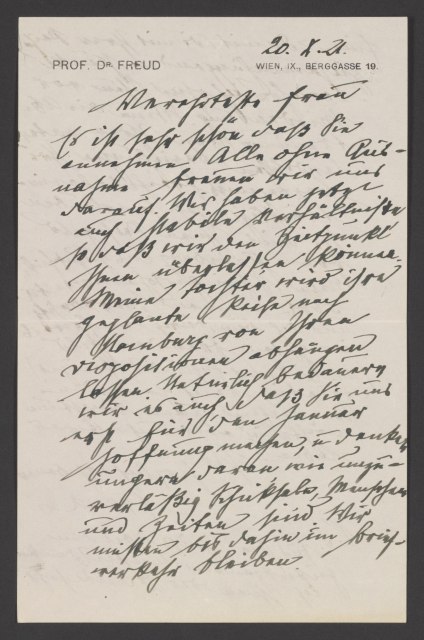 20. X. 21.
PROF. DR. FREUD
WIEN, IX., BERGGASSE 19.
Verehrteste Frau
Es ist sehr schön daß Sie
annehmen. Alle ohne Aus-
nahme freuen wir uns
darauf. Wir haben jetzt
auch stabile Verhältnisse
so daß wir den Zeitpunkt
Ihnen überlassen können.
Meine Tochter wird ihre
geplante Reise nach
Hamburg von Ihren
Dispositionen abhängen
lassen. Natürlich bedauern
wir es auch, daß Sie uns
erst für den Januar
Hoffnung machen, u denken
ungern daran wie unzu-
verläßig Schicksale, Menschen
und Zeiten sind. Wir
müßen bis dahin im Brief-
verkehr bleiben.